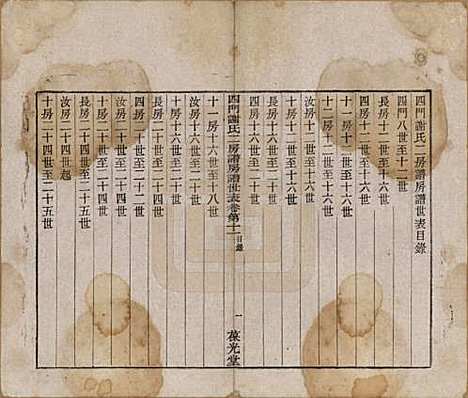 四門謝氏二房譜房譜世表目錄
四門八世至十二世
四房十二世至十六世
十房十二世至十六世
十一房十二世至十六世
十二房十二世至十六世
汝房十二世至十六世
長房十六世至二十世
四房十六世至二十世
十房十六世至二十世
四門謝氏二房譜房譜世表卷第十二 目錄 一 葆光堂
十一房十六世至十八世
汝房十六世至二十世
十房十六世至二十世
長房二十世至二十四世
四房二十世至二十二世
汝房二十世至二十四世
十房二十世至二十四世
長房二十四世至二十五世
汝房二十四世起
十房二十四世至二十五世